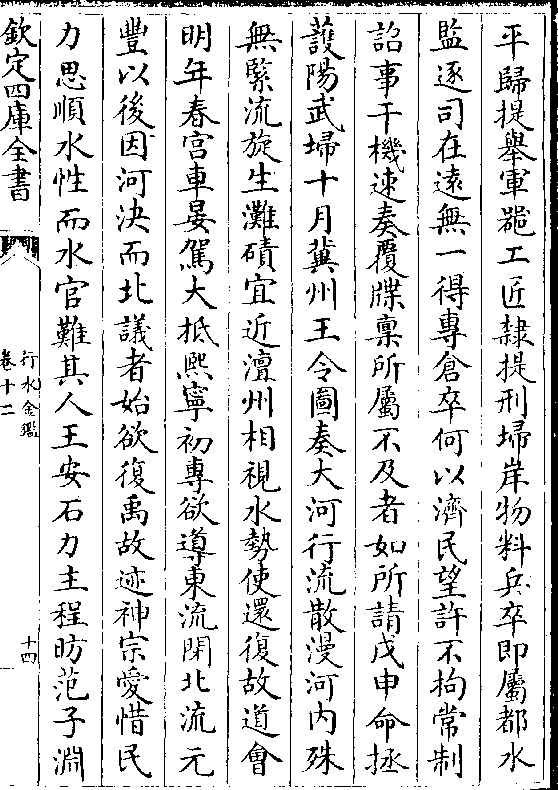 平歸提舉軍器工匠隸提刑埽岸物料兵卒即屬都水
監逐司在遠無一得專倉卒何以濟民望許不拘常制
詔事干機速奏覆牒稟所屬不及者如所請戊申命拯
護陽武埽十月冀州王令圖奏大河行流散漫河内殊
無緊流旋生灘磧宜近澶州相視水勢使還復故道會
明年春宫車晏駕大抵熙寧初專欲導東流閉北流元
豐以後因河決而北議者始欲復禹故迹神宗愛惜民
力思順水性而水官難其人王安石力主程昉范子淵
欽定四庫全書
行水金鑑
卷十二
十四